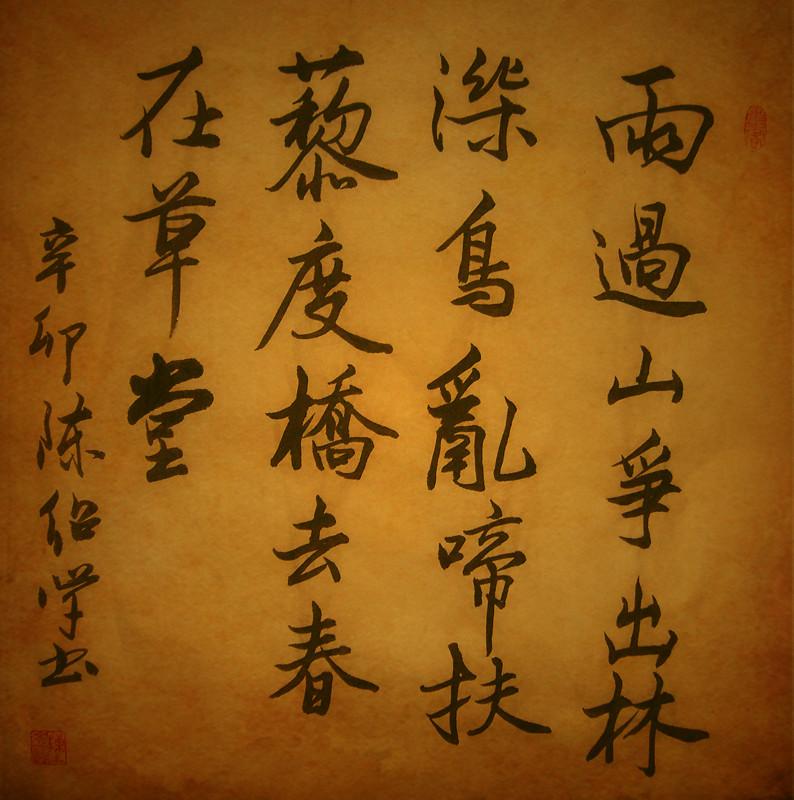 雨過山爭出林
深鳥亂啼扶
藜度橋去春
在草堂
辛卯陈绍学书